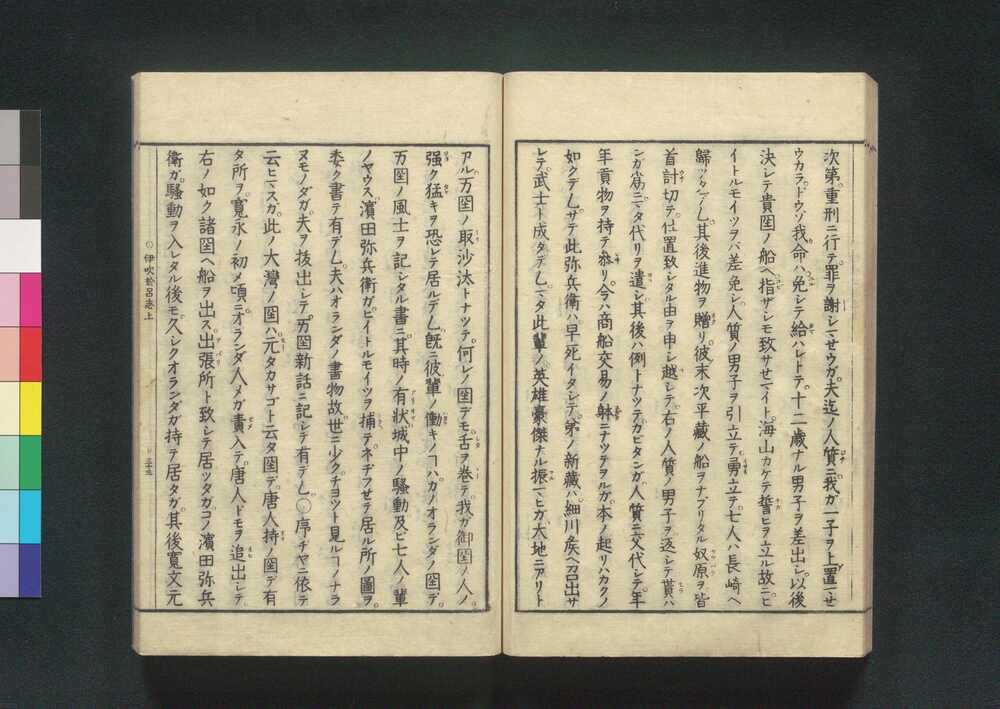 次第重刑ニ行テ罪ヲ謝シマせウガ夫迄ノ人質ニ我ガ一子ヲ上置マせ
ウカラドウソ我命ハ免シテ給ハレトテ十二歳ナル男子ヲ差出シ以後
決シテ貴囶ノ船ヘ指ザシモ致サせマイト海山カケテ誓ヒヲ立ル故ニピ
イトルモイツヲバ差免シ人質ノ男子ヲ引立テ勇立テ七人ハ長崎ヘ
歸ッタデ𪜈其後進物ヲ贈リ彼末次平藏ノ船ヲナブリタル奴原ヲ皆
首討切テ仕置致シタル由ヲ申シ越シテ右ノ人質ノ男子ヲ返シテ貰ハ
ンガ爲ニマタ代リヲ遣シ其後ハ例トナツテカピタンガ人質ニ交代シテ年
年貢物ヲ持テ參リ今ハ商船交易ノ躰ニナツテヲルガ本ノ起リハカクノ
如クデ𪜈サテ此弥兵衛ハ早死イタシテ弟ノ新藏ハ細川矦ヘ召出サ
レテ武士ト成タデ𪜈マタ此輩ノ英雄豪傑ナル振マヒガ大地ニアリト
アル万囶ノ取沙汰トナツテ何レノ囶デモ舌ヲ巻テ我ガ御囶ノ人ノ
强ク猛キヲ恐レテ居ルデ𪜈旣ニ彼輩ノ働キノヿハカノオランダノ囶デ
万囶ノ風土ヲ記シタル書ニ其時ノ有状城中ノ騒動及ビ七人ノ輩
ノヤウス濱田弥兵衛ガピイトルモイツヲ捕テネヂフせテ居ル所ノ圖ヲ
委ク書テ有デ𪜈夫ハオランダノ書物故世ニ少クチヨツト見ルヿノナラ
ヌモノダガ夫ヲ抜出シテ万囶新話ニ記シテ有デ𪜈〇序ヂヤニ依テ
云ヒマスガ此ノ大灣ノ囶ハ元タカサゴト云タ囶デ唐人持ノ囶デ有
タ所ヲ寛永ノ初メ頃ニオランダ人メガ責入テ唐人ドモヲ追出シテ
右ノ如ク諸囶ヘ船ヲ出ス出張所ト致シテ居ッタガコノ濱田弥兵
衛ガ騒動ヲ入レタル後モ久シクオランダガ持テ居タガ其後寛文元
〇伊吹於呂志上